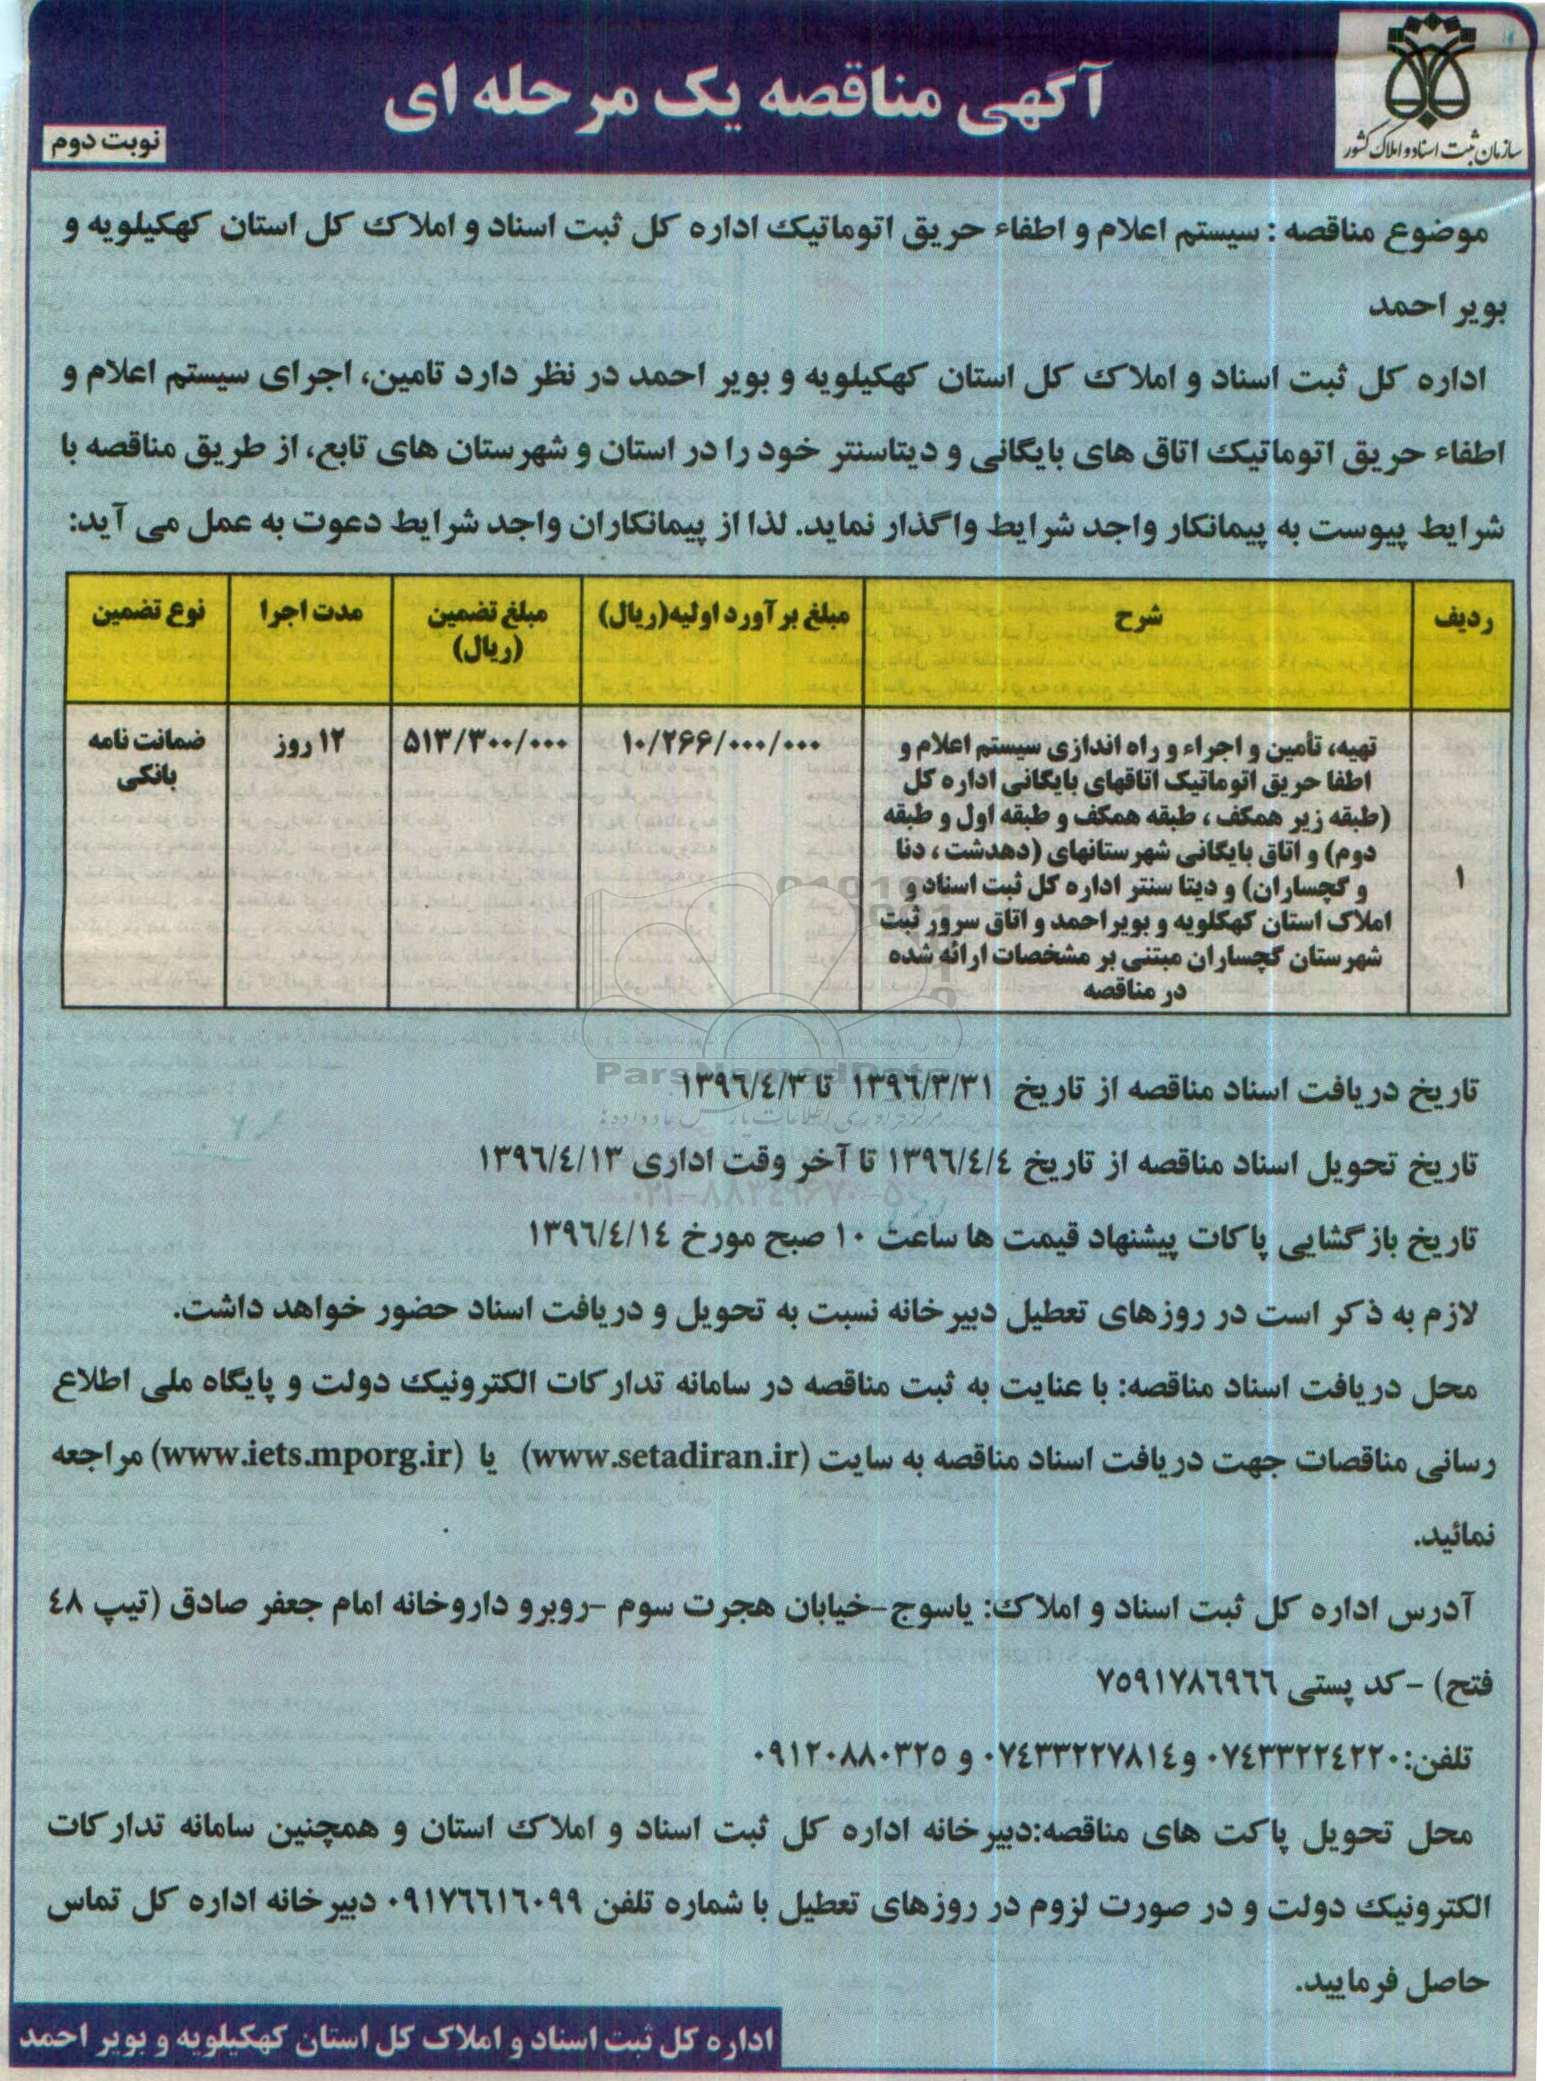 سازمان ثبت اسناد و املاک کشور
آگهی مناقصه یک مرحله ای
نوبت دوم
موضوع مناقصه : سیستم اعلام و اطفاء حریق اتوماتیک اداره کل ثبت اسناد و املاک کل استان کهکیلویه و
بویر احمد
اداره کل ثبت اسناد و املاک کل استان کهکیلویه و بویر احمد در نظر دارد تامین، اجرای سیستم اعلام و
اطفاء حریق اتوماتیک اتاق های بایگانی و دیتاسنتر خود را در استان و شهرستان های تابع، از طریق مناقصه با
شرایط پیوست به پیمانکار واجد شرایط واگذار نماید. لذا از پیمانکاران واجد شرایط دعوت به عمل می آید:
ردیف شرح مبلغ برآورد اولیه(ریال) مبلغ تضمین (ریال) مدت اجرا نوع تضمین
۱
تهیه، تأمین و اجراء و راه اندازی سیستم اعلام و
اطفا حریق اتوماتیک اتاقهای بایگانی اداره کل
(طبقه زیر همکف ، طبقه همکف و طبقه اول و طبقه
دوم) و اتاق بایگانی شهرستانهای (دهدشت ، دنا
و گچساران) و دیتا سنتر اداره کل ثبت اسناد و
املاک استان کهگلویه و بویراحمد و اتاق سرور ثبت
شهرستان گچساران مبتنی بر مشخصات ارائه شده
در مناقصه
۱۰/۲۶۶/۰۰۰/۰۰۰
۵۱۳/۳۰۰/۰۰۰
۱۲ روز
ضمانت نامه
بانکی
ParsNamadData
تاریخ دریافت اسناد مناقصه از تاریخ ۱۳۹۶/۳/۳۱ تا ۱۳۹۶/٤/۳
تاریخ تحویل اسناد مناقصه از تاریخ ۱۳۹۶/٤/٤ تا آخر وقت اداری ۱۳۹۶/٤/۱۳
۰۲۱-۸۸۳۴۹۶۷۰-۵
تاریخ بازگشایی پاکات پیشنهاد قیمت ها ساعت ۱۰ صبح مورخ ۱۳۹۶/٤/۱٤
لازم به ذکر است در روزهای تعطیل دبیرخانه نسبت به تحویل و دریافت اسناد حضور خواهد داشت.
محل دریافت اسناد مناقصه: با عنایت به ثبت مناقصه در سامانه تدارکات الکترونیک دولت و پایگاه ملی اطلاع
رسانی مناقصات جهت دریافت اسناد مناقصه به سایت (www.setadiran.ir) یا (www.iets.mporg.ir) مراجعه
نمائید.
آدرس اداره کل ثبت اسناد و املاک: یاسوج-خیابان هجرت سوم -روبرو داروخانه امام جعفر صادق (تیپ ٤۸
فتح) -کد پستی ۷۵۹۱۷۸٦۹٦٦
تلفن: ۰۷٤۳۳۲۲٤۲۲۰ و ۰۷٤۳۳۲۲۷۸۱٤ و ۰۹۱۲۰۸۸۰۳۲۵
محل تحویل پاکت های مناقصه:دبیرخانه اداره کل ثبت اسناد و املاک استان و همچنین سامانه تدارکات
الکترونیک دولت و در صورت لزوم در روزهای تعطیل با شماره تلفن ۰۹۱۷٦٦۱٦۰۹۹ دبیرخانه اداره کل تماس
حاصل فرمایید.
اداره کل ثبت اسناد و املاک کل استان کهکیلویه و بویر احمد